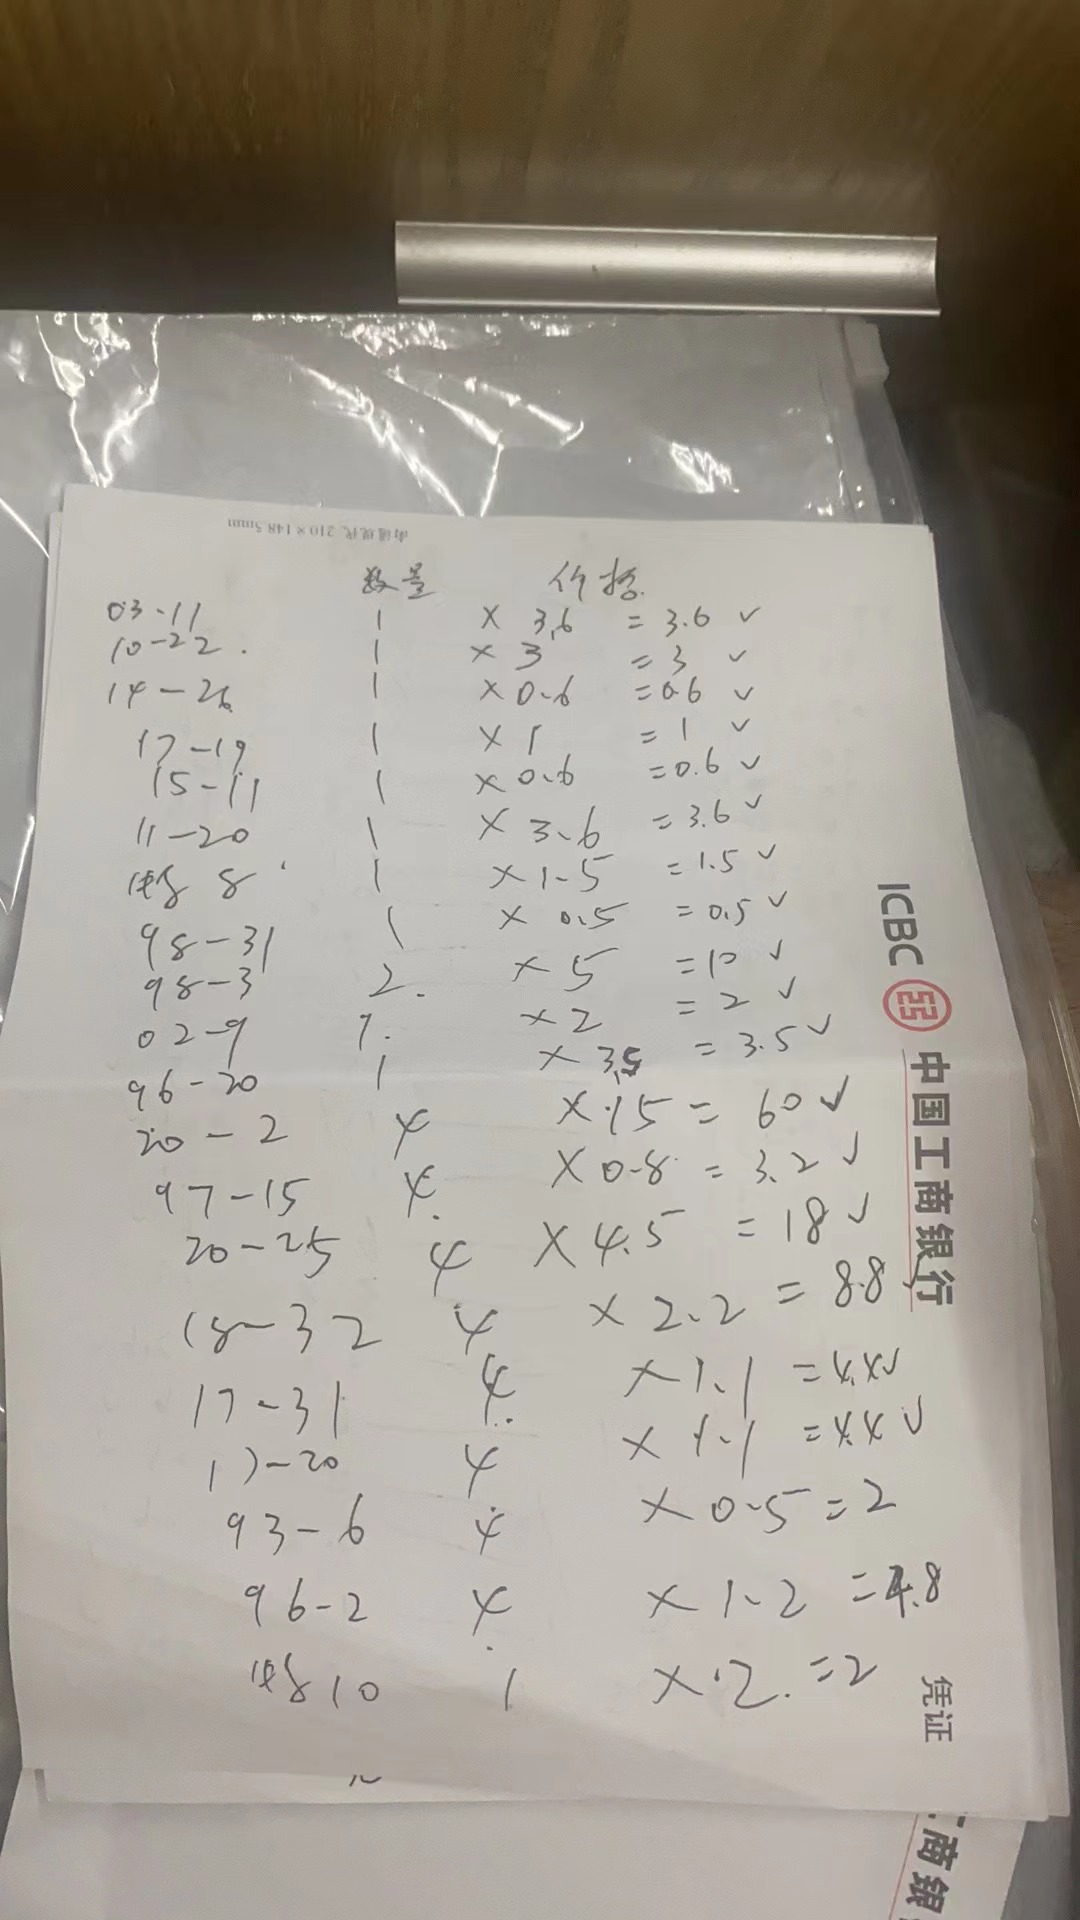 南通现代 210×148.5mm
数量 价格
03-11 1 × 3.6 = 3.6 ✓
10-22. 1 × 3 = 3 ✓
14-26 1 × 0.6 = 0.6 ✓
17-19 1 × 1 = 1 ✓
15-11 1 × 0.6 = 0.6 ✓
11-20 1 × 3.6 = 3.6 ✓
8 1 × 1.5 = 1.5 ✓
98-31 1 × 0.5 = 0.5 ✓
98-3 2. × 5 = 10 ✓
02-9 1. × 2 = 2 ✓
96-20 1 × 3.5 = 3.5 ✓
20-2 4 × 15 = 60 ✓
97-15 4. × 0.8 = 3.2 ✓
20-25 4 × 4.5 = 18 ✓
18-32 4 × 2.2 = 8.8 ✓
17-31 4 × 1.1 = 4.4 ✓
17-20 4 × 1.1 = 4.4 ✓
93-6 4 × 0.5 = 2
96-2 4 × 1.2 = 4.8
10 1 × 2. = 2
ICBC 中国工商银行 凭证
工商银